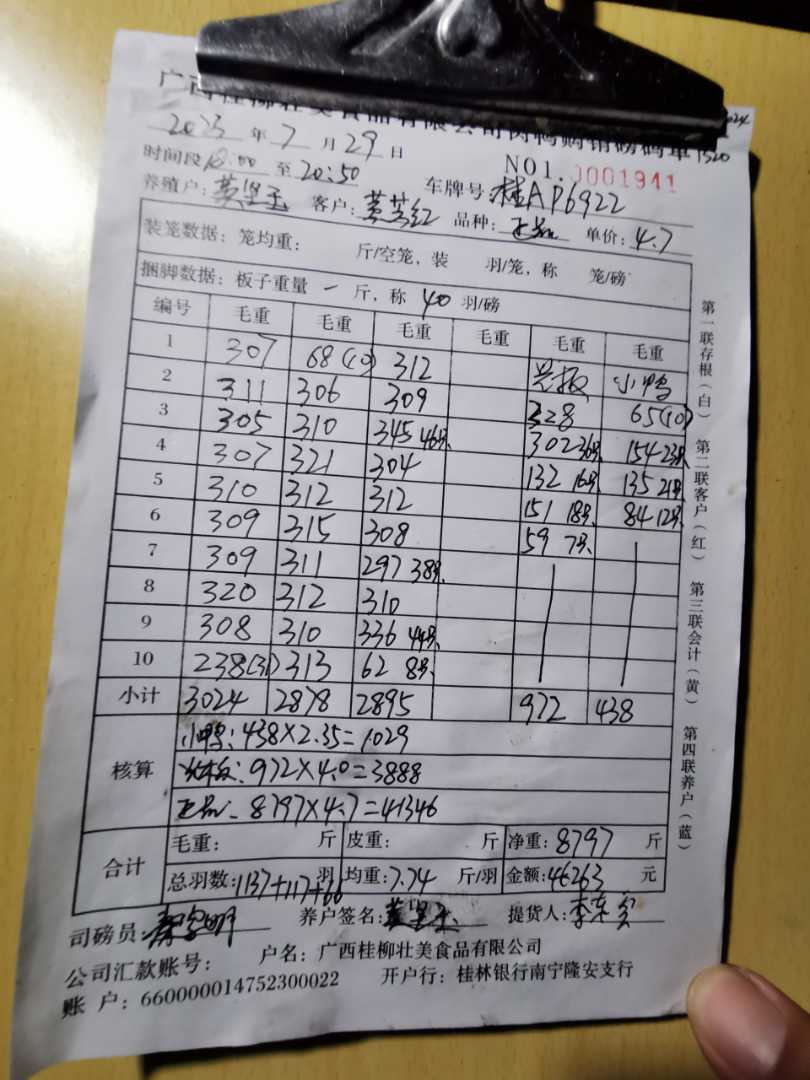 广西桂柳壮美食品有限公司肉鸭购销磅码单
1520
2023年7月29日
NO1. 0001941
时间段 18:00 至 20:50
车牌号:桂AP6922
养殖户:黄坚玉 客户: 品种: 单价:4.7
装笼数据:笼均重: 斤/空笼,装 羽/笼,称 笼/磅
捆脚数据:板子重量 一 斤,称 40 羽/磅
编号 毛重 毛重 毛重 毛重 毛重 毛重
1 307 68(10) 312 小鸭
2 311 306 309 328 65(10)
3 305 310 345 46只 302 36只 154 23只
4 307 321 304 132 16只 135 21只
5 310 312 312 151 18只 84 12只
6 309 315 308 59 7只
7 309 311 297 38只
8 320 312 310
9 308 310 336 44只
10 238(31) 313 62 8只
小计 3024 2878 2895 972 438
核算
小鸭:438×2.35=1029
972×4.0=3888
8797×4.7=41346
合计
毛重: 斤 皮重: 斤 净重:8797 斤
总羽数:1137+117+66 羽 均重:7.74 斤/羽 金额:46263 元
司磅员: 养户签名:黄坚玉 提货人:
公司汇款账号: 户名:广西桂柳壮美食品有限公司
账 户:660000014752300022 开户行:桂林银行南宁隆安支行
第一联存根(白) 第二联客户(红) 第三联会计(黄) 第四联养户(蓝)